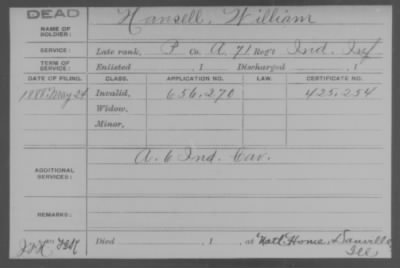 DEAD
NAME OF SOLDIER: Hansell, William
SERVICE: Late rank, P Co. A, 71 Reg't Ind. Inf
TERM OF SERVICE: Enlisted , 1 Discharged , 1
DATE OF FILING. CLASS. APPLICATION NO. LAW. CERTIFICATE NO.
1888, May 24 Invalid, 656,270 425,254
Widow,
Minor,
ADDITIONAL SERVICES: A. 6 Ind. Cav.
REMARKS:
Died , 1 , at "Natl" Home, Danville
Ill,